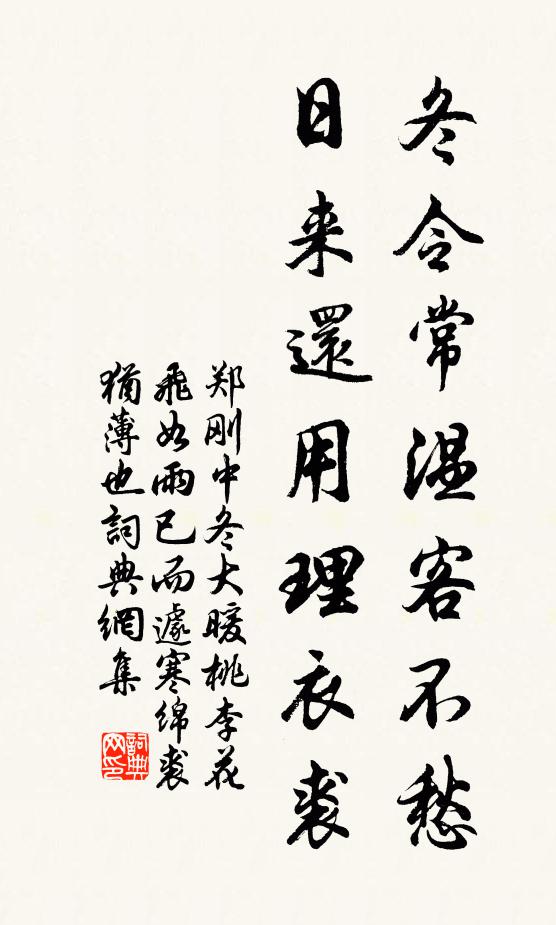 冬令常温客不愁
日来還用理衣裘
郑刚中冬大暖桃李花
飛如雨已而遽寒绵裘
猶薄也詞典網集
詞典网印